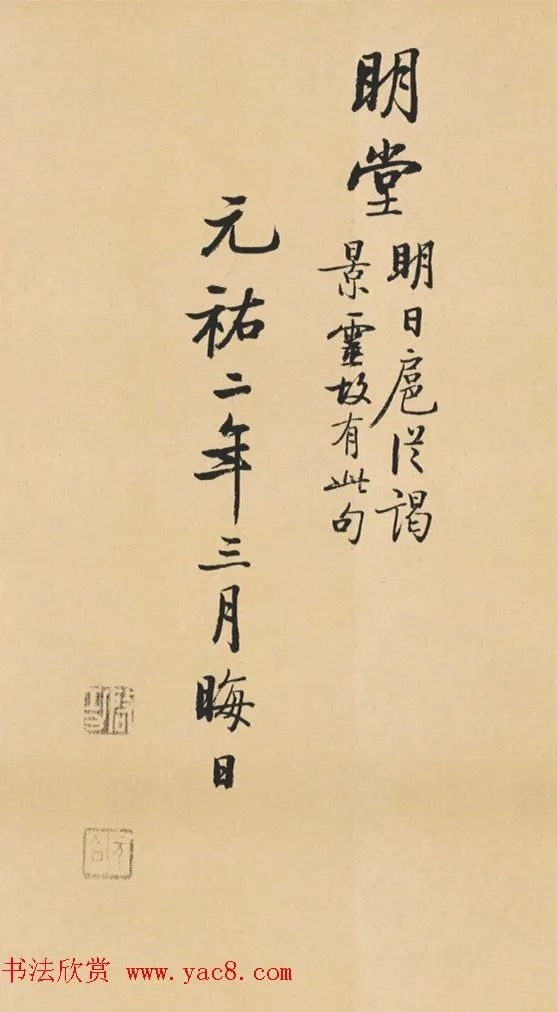 明堂
明日扈从謁
景靈故有此句
元祐二年三月晦日
书法欣赏 www.yac8.com